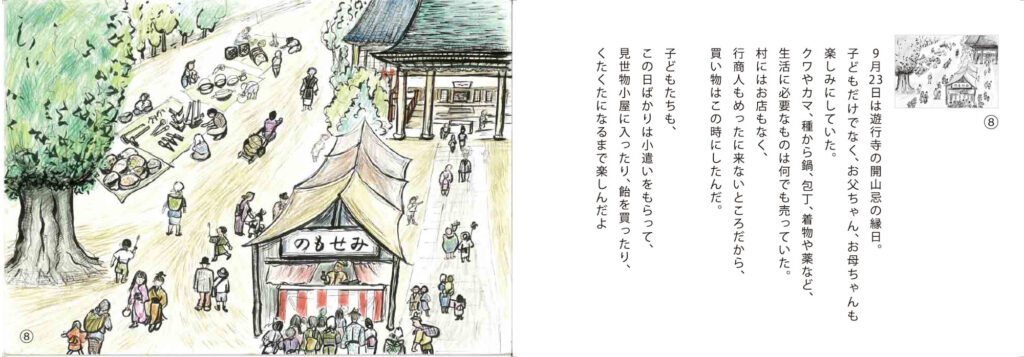 ⑧
9月23日は遊行寺の開山忌の縁日。
子どもだけでなく、お父ちゃん、お母ちゃんも
楽しみにしていた。
クワやカマ、種から鍋、包丁、着物や薬など、
生活に必要なものは何でも売っていた。
村にはお店もなく、
行商人もめったに来ないところだから、
買い物はこの時にしたんだ。
子どもたちも、
この日ばかりは小遣いをもらって、
見世物小屋に入ったり、飴を買ったり、
くたくたになるまで楽しんだよ
みせもの
⑧